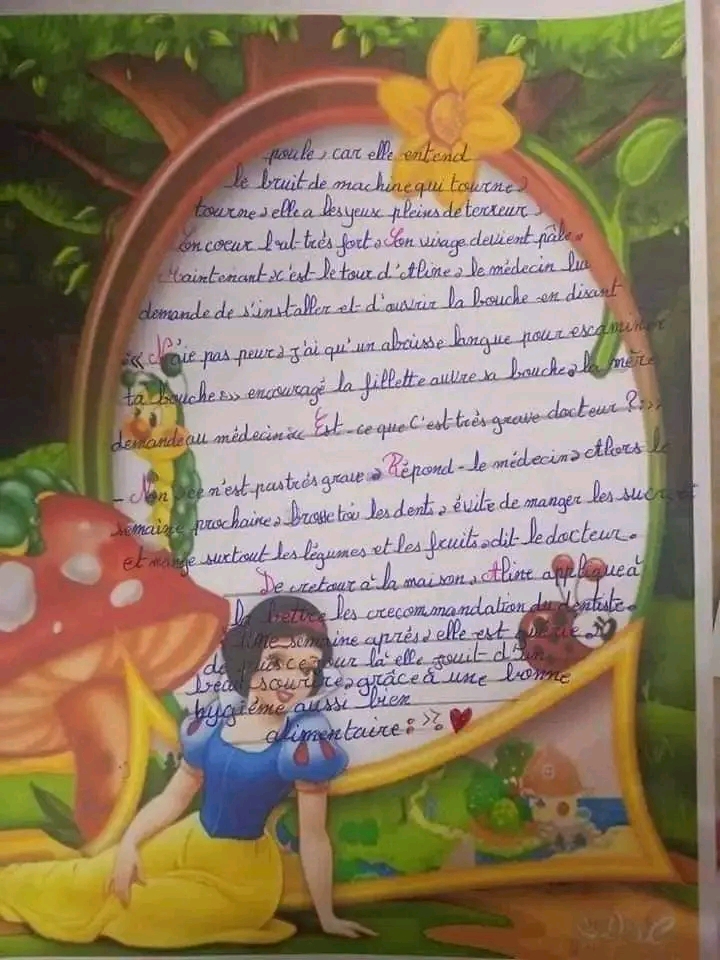 poule, car elle entend
le bruit de machine qui tourne,
tourne, elle a les yeux pleins de terreur,
Son coeur bat très fort, Son visage devient pâle.
Maintenant c'est le tour d'Aline, le médecin lui
demande de s'installer et d'ouvrir la bouche en disant
« N'aie pas peur, j'ai qu'un abaisse langue pour escaminer
ta bouche », encouragé la fillette ouvre sa bouche, la mère
demande au médecin « Est-ce que C'est très grave docteur ? »,
- Non, ce n'est pas très grave, Répond-le médecin, Alors la
semaine prochaine, brosse toi les dents, évite de manger les sucr et
et mange surtout les légumes et les fruits, dit le docteur.
De retour à la maison, Aline applique à
la lettre les recommandation du dentiste.
Une semaine après, elle est
de puis ce jour là elle jouit d'un
beau sourire, grâce à une bonne
hygiéme aussi bien
alimentaire : ».